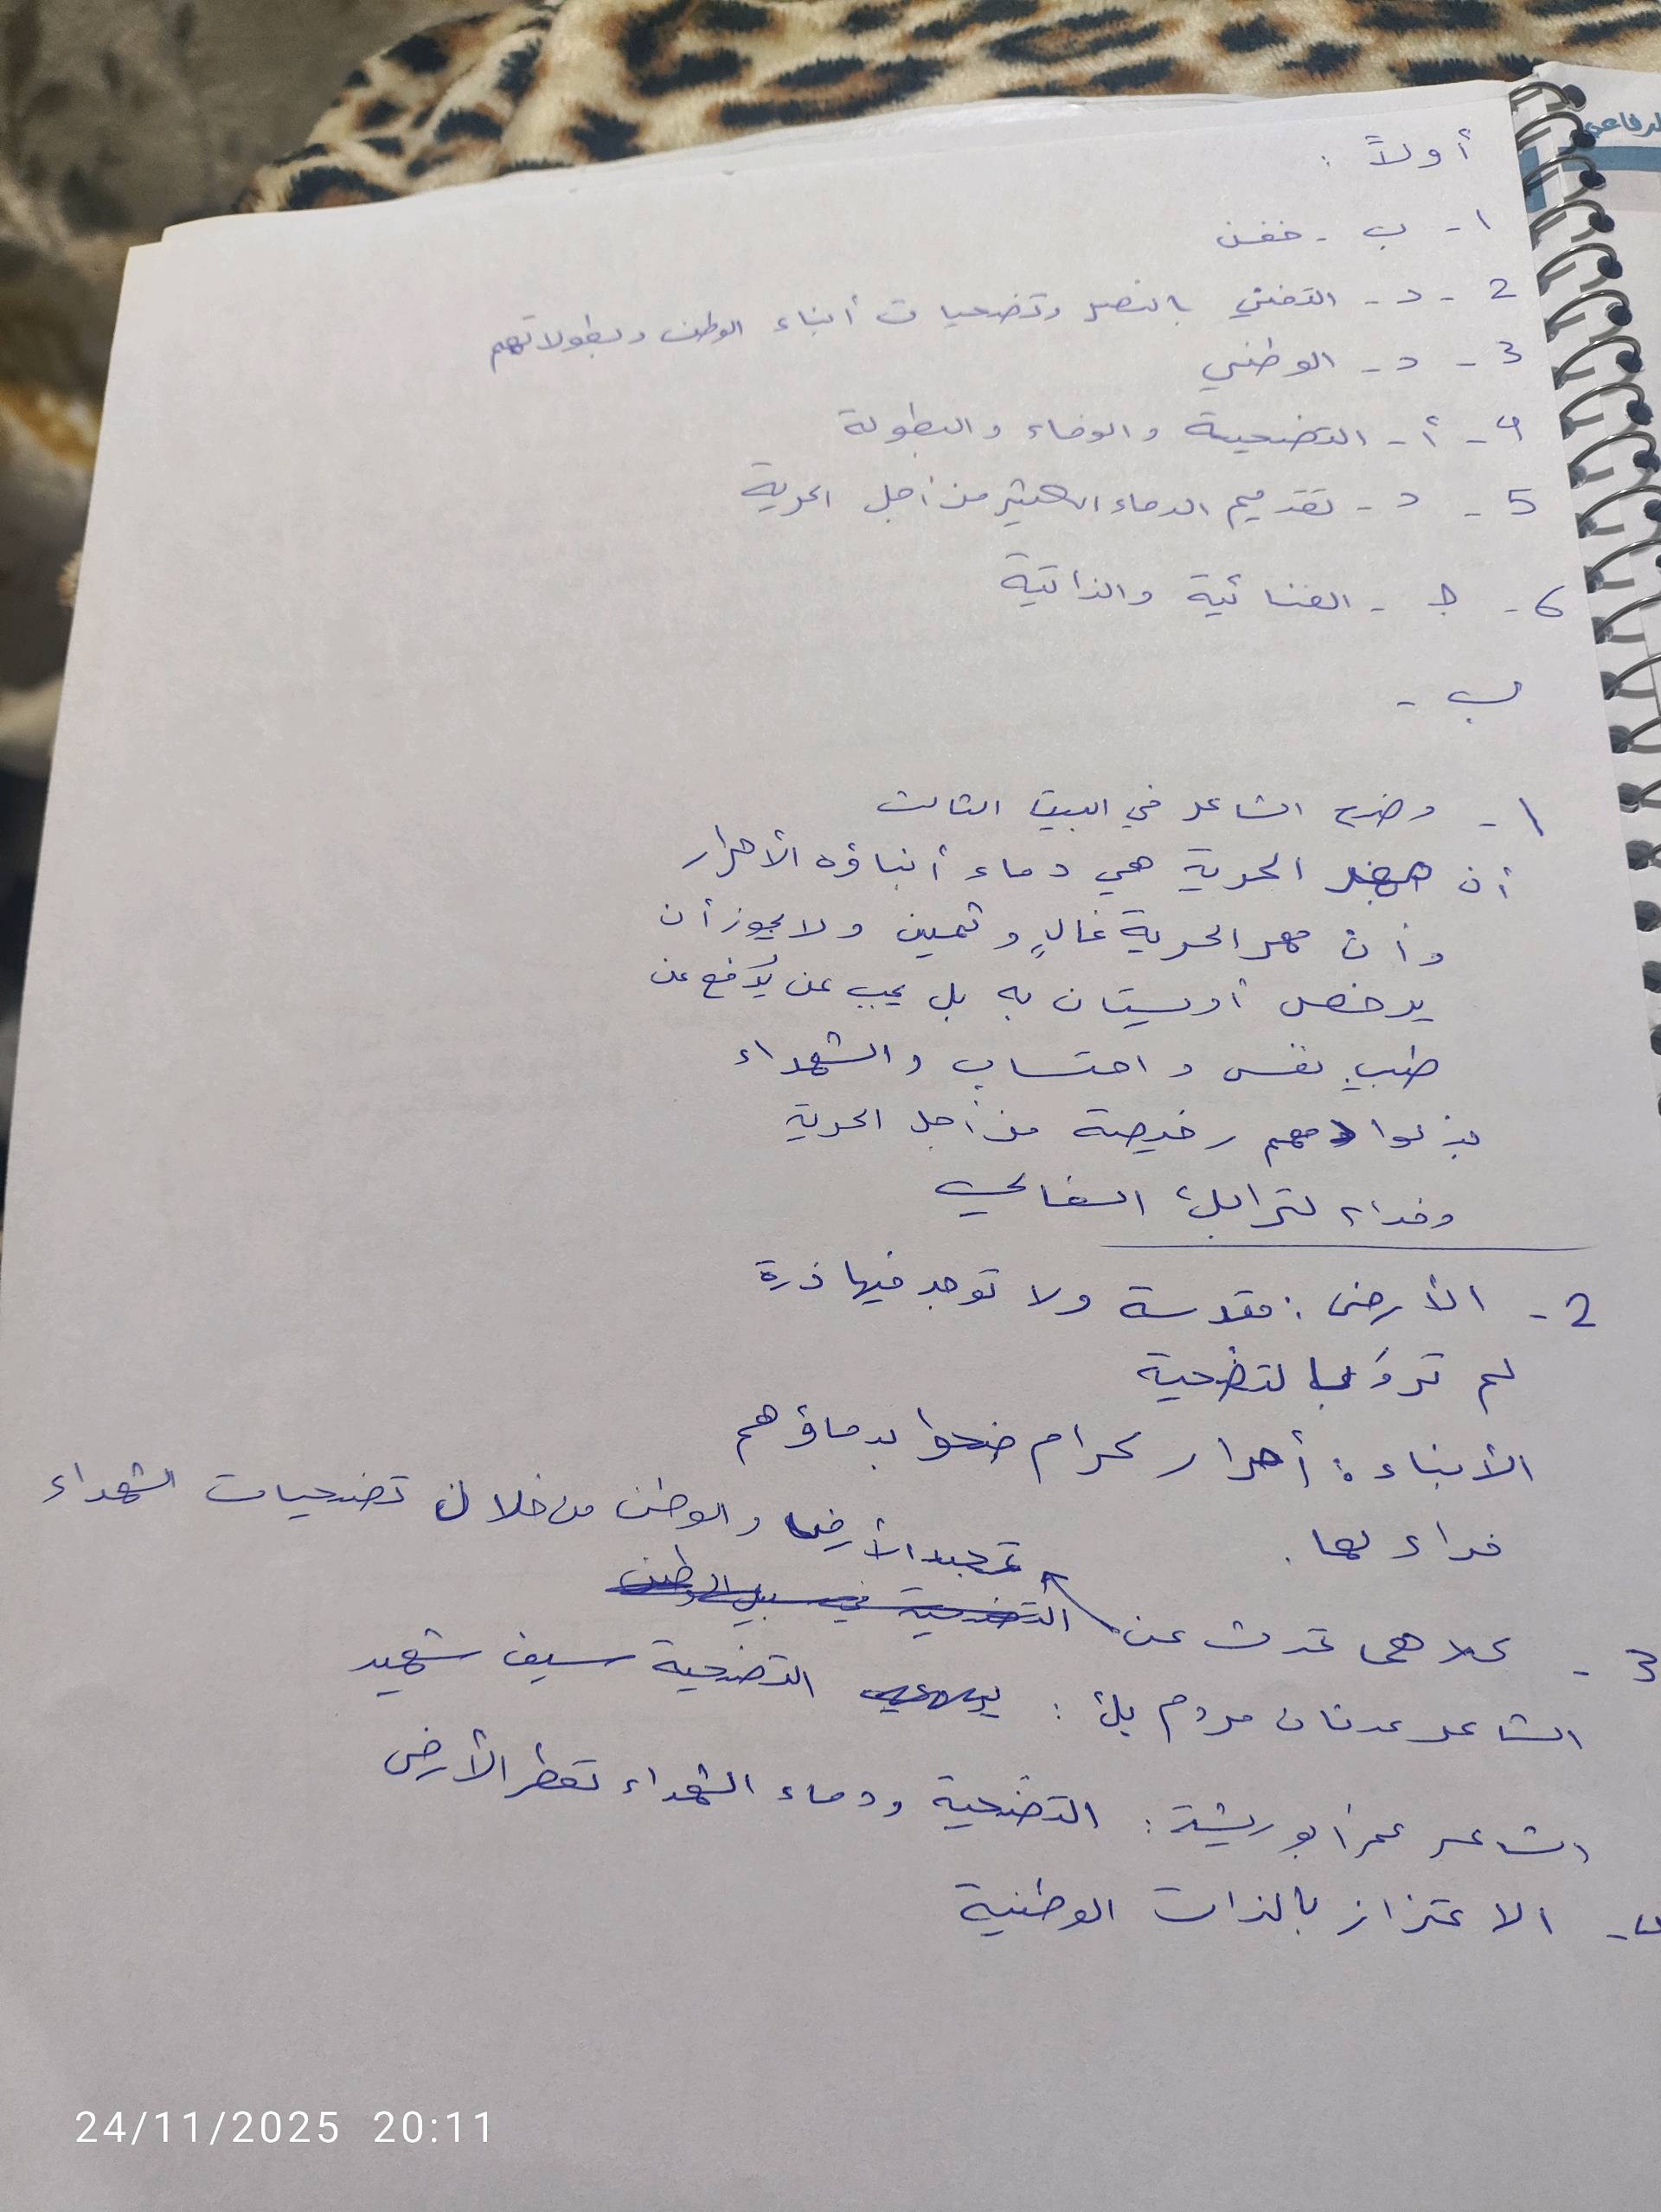 أولاً :
1- ب - خفض
2 - د - التغني بالنصر وتضحيات أبناء الوطن وبطولاتهم
3 - د - الوطني
4 - أ - التضحية والوفاء والبطولة
5 - د - تقديم الدماء الكثير من أجل الحرية
6 - ج - الغنائية والذاتية
ب -
1 - وضح الشاعر في البيت الثالث
أن مهر الحرية هي دماء أبناؤه الأحرار
وأن مهر الحرية غالٍ وثمين ولا يجوز أن
يرخص أو يستهان به بل يجب عن يُدفع عن
طيب نفس واحتساب والشهداء
بذلوا دمهم رخيصة من أجل الحرية
وفداء لتراب الغالي
2 - الأرض : مقدسة ولا توجد فيها ذرة
لم تروَ بالتضحية
الأبناء : أحرار كرام ضحوا بدماؤهم
فداء لها .
تمجيد الأرض والوطن من خلال تضحيات الشهداء
3 - كلاهما تحدث عن التضحية في سبيل الوطن
الشاعر عدنان مردم بك : التضحية سيف شهيد
الشاعر عمر أبو ريشة : التضحية ودماء الشهداء تعطر الأرض
الاعتزاز بالذات الوطنية
24/11/2025 20:11